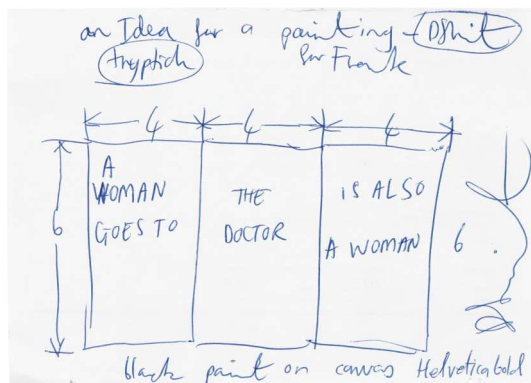 an Idea for a painting -
(tryptich) for Frank
4 4 4
A
WOMAN
GOES TO
THE
DOCTOR
IS ALSO
A WOMAN
6
6
black paint on canvas Helvetica Bold